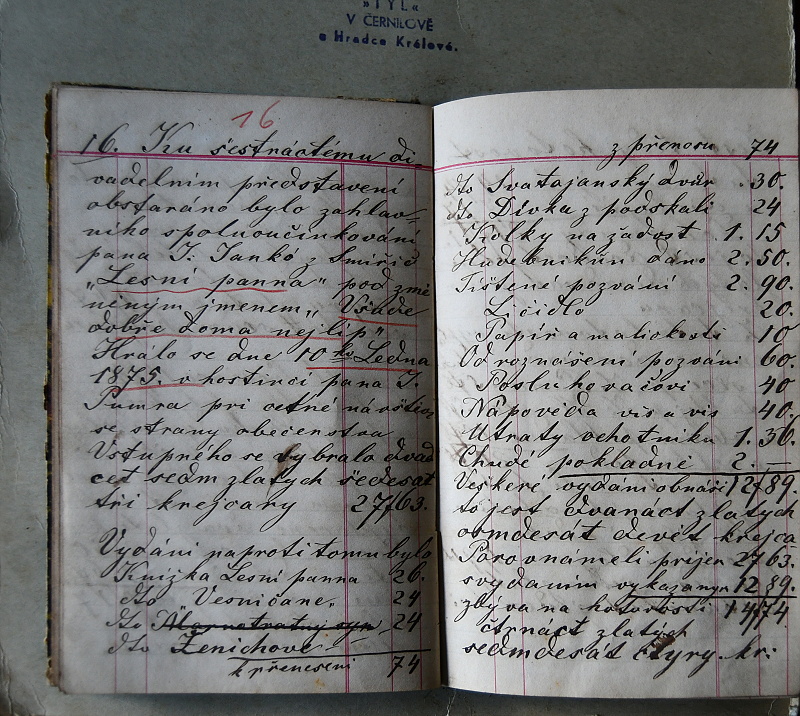 »TYL«
V ČERNILOVĚ
u Hradce Králové.
16
16. Ku šestnáctému di-
vadelním představení
obstaráno bylo zahlav-
ního spoluoučinkování
pana J. Jankó z Smiřic
„Lesní panna" pod změ
něným jmenem „Všude
dobře doma nejlíp"
Hrálo se dne 10ho Ledna
1875. v hostinci pana J.
Pumra při cetné návštěvě
se strany obecenstva
Vstupného se vybralo dvad
cet sedm zlatých šedesát
tři krejcary 27/63.
Vydání naproti tomu bylo
Knížka Lesní panna 26.
dto Vesničane„ 24
dto Marnotratný syn 24
dto Ženichové
k přenesení 74
z přenosu 74
dto Svatojanský dvůr . 30.
dto Divka z podskalí 24
Kolky na žádost 1. 15
Hudebníkům dáno 2. 50.
Tištené pozvání 2. 90.
Líčidlo 20.
Papír a maličkosti 10
Od roznášení pozvání 60.
Posluhovačovi 40
Nápověda vis a vis 40.
Utraty ochotníku 1. 36.
Chudé pokladné 2. —
Veškeré vydání obnáší 12/89.
to jest dvanáct zlatých
osmdesát devět krejca
Porovnámeli příjem 27/63.
s vydáním vykazaným 12/89.
zbývá na hotovosti 14/74
čtrnáct zlatých
sedmdesát čtyry. kr: